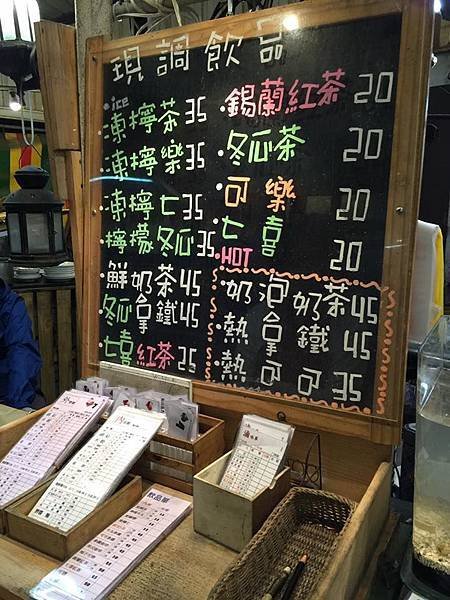 現調飲品
·ice
·凍檸茶35
·凍檸樂35
·凍檸七35
·檸檬冬瓜35
·鮮奶茶45
·冬瓜拿鐵45
·七喜紅茶25
·錫蘭紅茶20
·冬瓜茶20
·可樂20
·七喜20
·HOT
·奶泡奶茶45
·熱拿鐵45
·熱可可35
飲品單